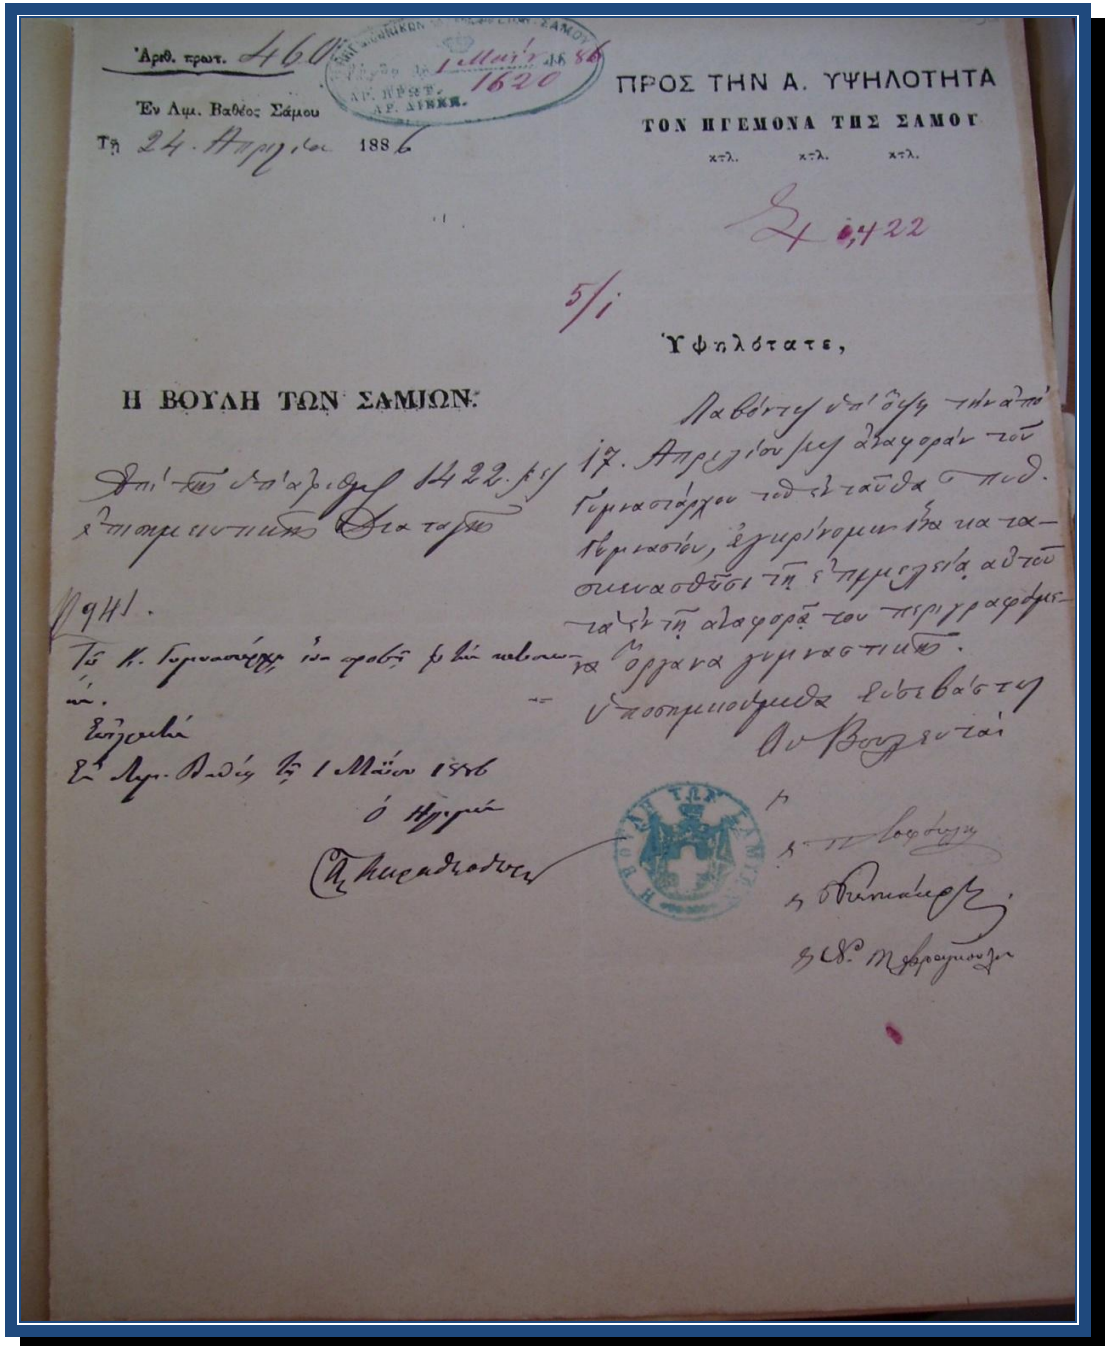 Ἀριθ. πρωτ. 460
Ἐν Λιμ. Βαθέος Σάμου
Τῇ 24 Ἀπριλίου 1886
ΣΑΜΟΥ
1 Μαΐου 1886
1620
ΑΡ. ΠΡΩΤ.
ΑΡ. ΔΙΕΚΠ.
ΠΡΟΣ ΤΗΝ Α. ΥΨΗΛΟΤΗΤΑ
ΤΟΝ ΗΓΕΜΟΝΑ ΤΗΣ ΣΑΜΟΥ
κτλ. κτλ. κτλ.
1,422
5/1
Ὑψηλότατε,
Η ΒΟΥΛΗ ΤΩΝ ΣΑΜΙΩΝ.
Ἐπὶ τῆς ὑπ' ἀριθμ. 1422
ἐπισημειωτικῆς Διαταγῆς
Λαβόντες ὑπ' ὄψη τὴν ἀπὸ
17. Ἀπριλίου μες ἀναφορὰν τοῦ
Γυμνασιάρχου τοῦ ἐνταῦθα Πυθ.
Γυμνασίου, ἐγκρίνομεν ἵνα κατα-
σκευασθῶσι τῇ ἐπιμελείᾳ αὐτοῦ
τὰ ἐν τῇ ἀναφορᾷ του περιγραφόμε-
να ὄργανα γυμναστικῆς.
Ὑποσημειούμεθα Εὐσεβάστως
Οἱ Βουλευταὶ
941.
Τῷ Κ. Γυμνασιάρχῃ ἵνα προβῇ
Ἐν Λιμ. Βαθέος τῇ 1 Μαΐου 1886
ὁ Ἡγεμὼν
Ἀ. Καραθεοδωρῆς
Η ΒΟΥΛΗ ΤΩΝ ΣΑΜΙΩΝ